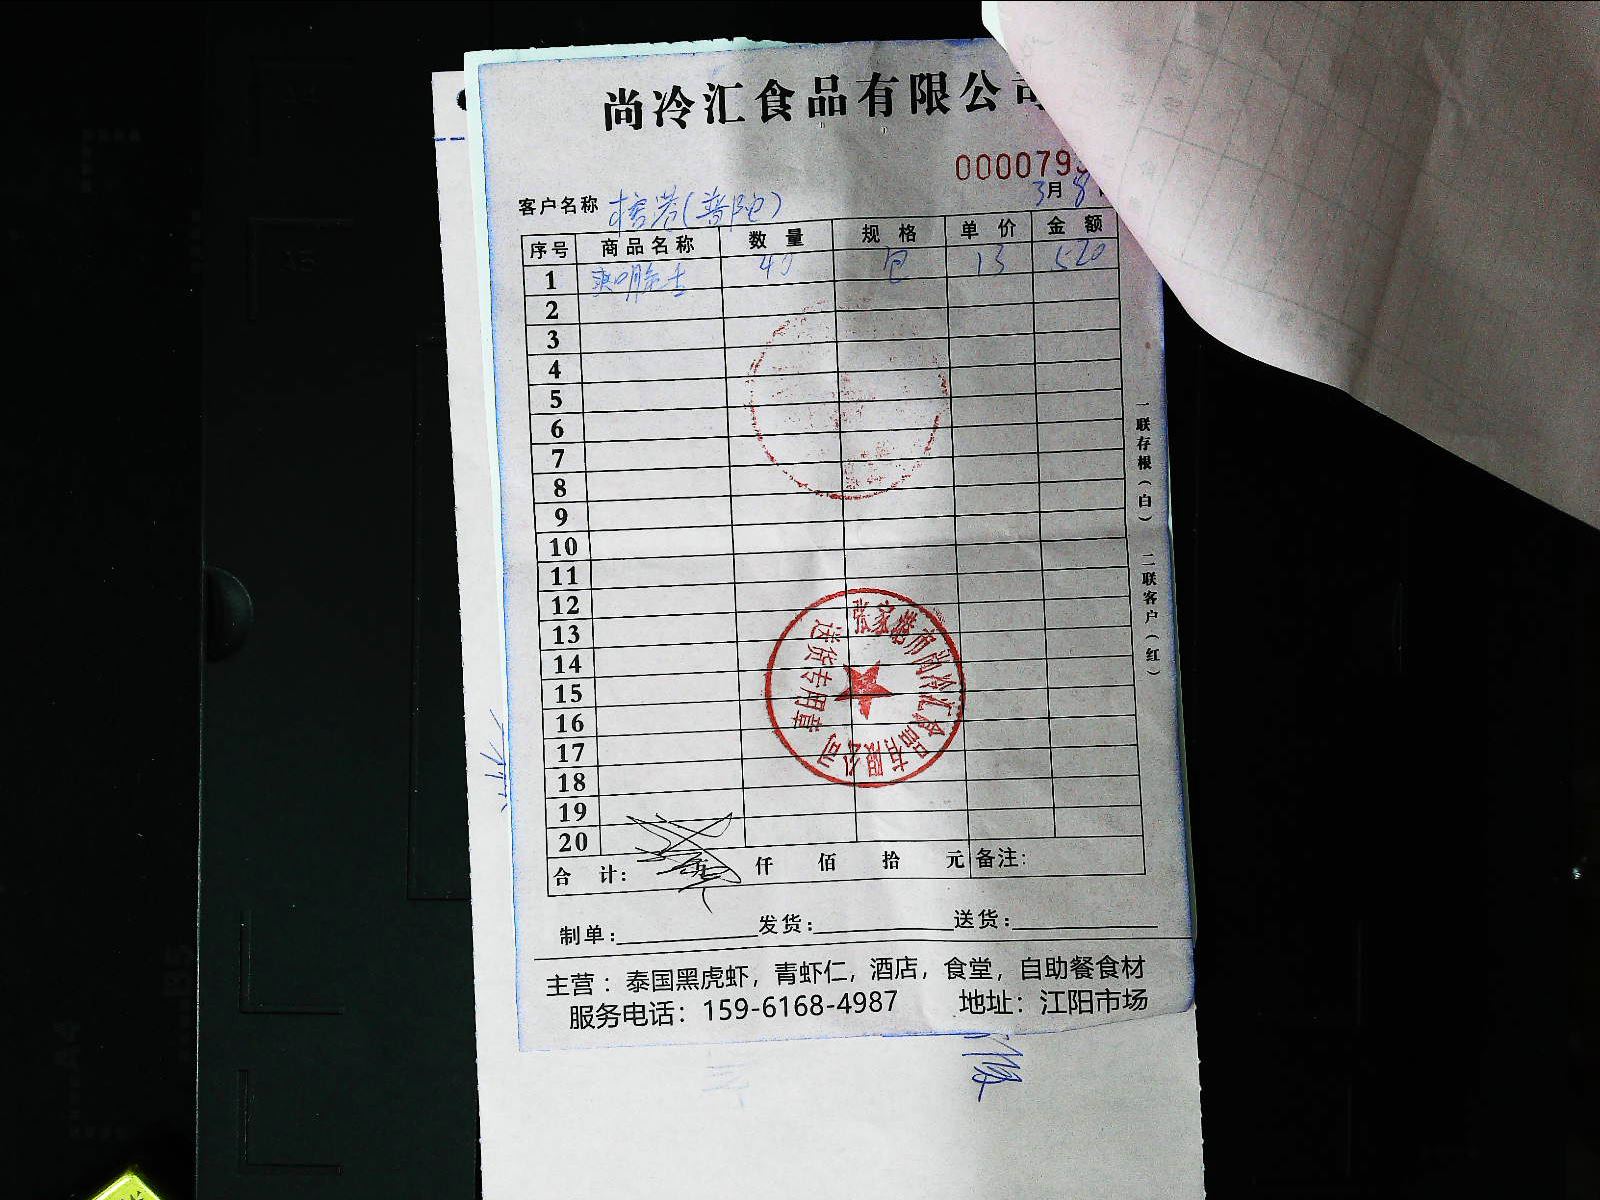 尚冷汇食品有限公司
0000079
3月8
客户名称 (普陀)
序号 商品名称 数量 规格 单价 金额
1 40 包 13 520
2
3
4
5
6
7
8
9
10
11
12
13
14
15
16
17
18
19
20
合计: 仟 佰 拾 元 备注:
制单: 发货: 送货:
主营：泰国黑虎虾，青虾仁，酒店，食堂，自助餐食材
服务电话：159-6168-4987 地址：江阳市场
一联存根（白） 二联客户（红）
张家港市尚冷汇食品有限公司
送货专用章